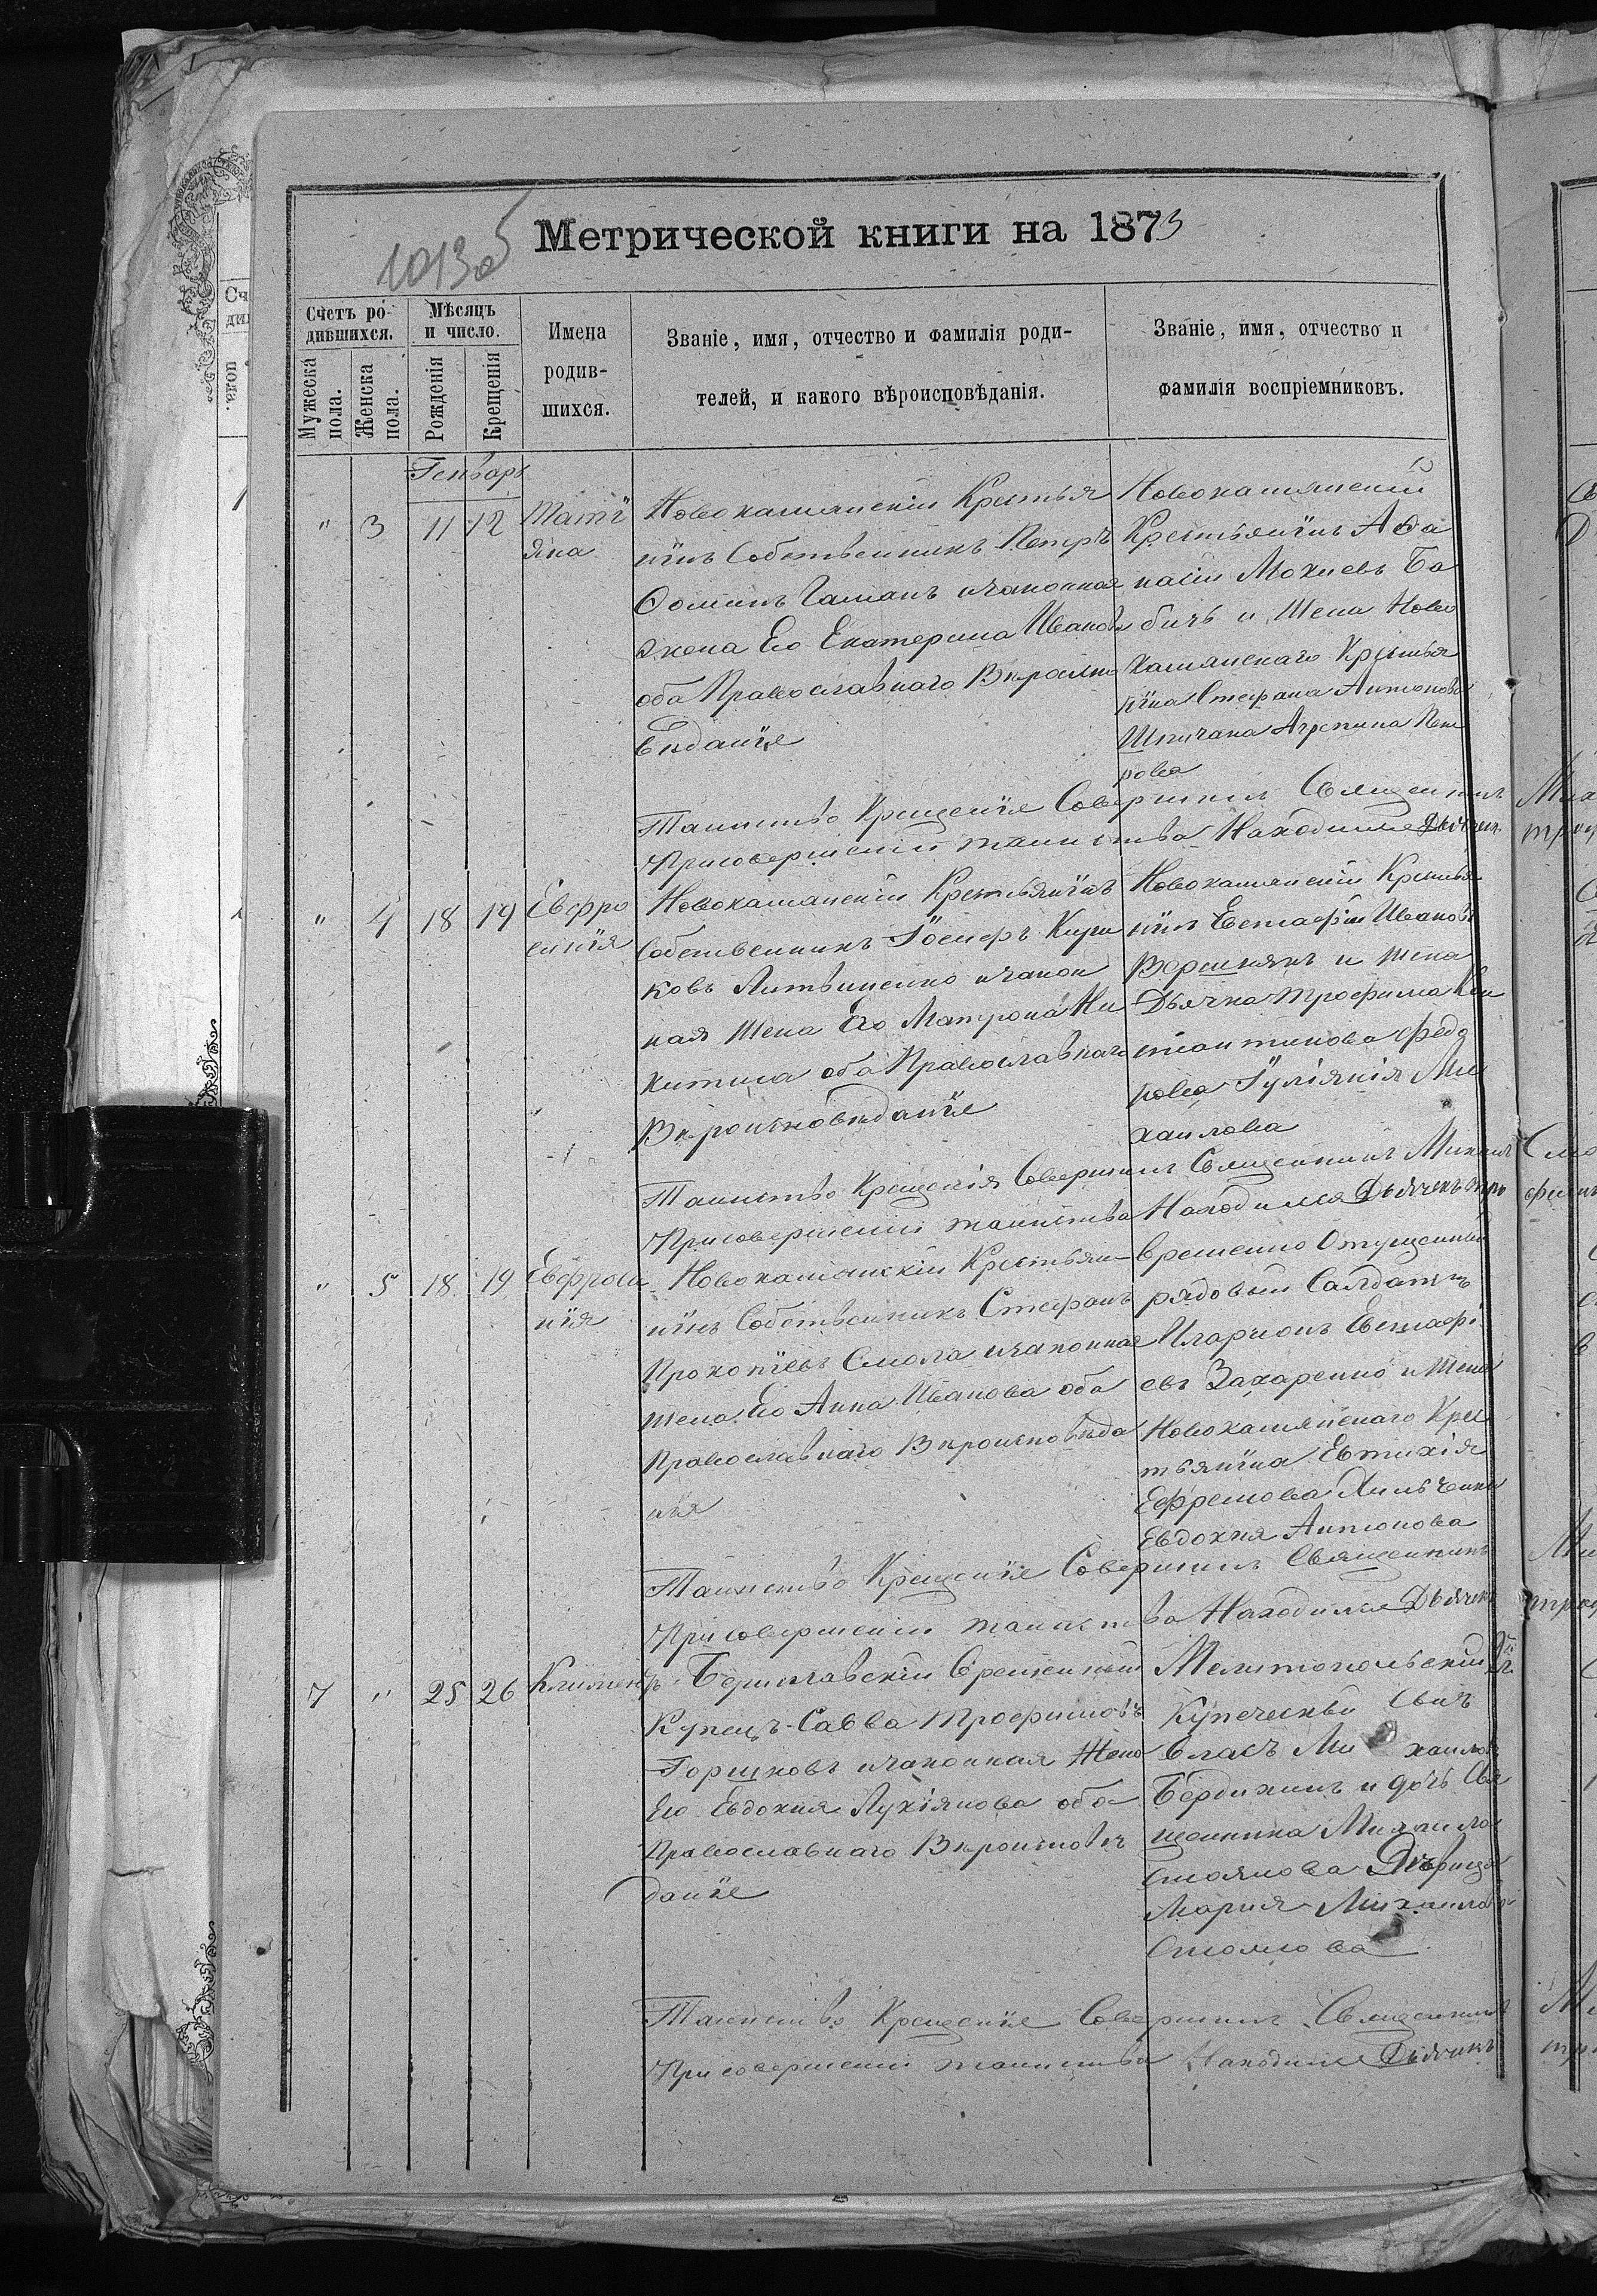 Метрической книги на 1873
1013 об
Счетъ ро-
дившихся.
Мѣсяцъ
и число.
Имена
родив-
шихся.
Званіе, имя, отчество и фамилія роди-
телей, и какого вѣроисповѣданія.
Званіе, имя, отчество и
фамилія воспріемниковъ.
Мужеска
пола.
Женска
пола.
Рожденія
Крещенія
Генварь
" 3 11 12
Татї
яна
Новокаменскїи Крестья
нинъ Собственникъ Петръ
Ѳоминъ Гаманъ и законная
жена Его Екатерина Иванов
оба Православнаго Вѣроиспо
вѣданїе
Новокаменскїи
Крестьянинъ Афа
насїи Мокиевъ Ба
бичъ и жена Ново
каменскаго Крестья
нина Стефана Антонова
Шпичака Агрепина Пет
рова
Таинство Крещенїе Совершилъ Священникъ
При совершенїи таинства Находился Дьячекъ
" 4 18 19
Евфро
синїя
Новокаменскїи Крестьянинъ
Собственникъ Їосифъ
ковъ Литвиненко и закон
ная жена Его Матрона Ни
китина оба Православнаго
Вѣроисповѣданїе
Новокаменскїи Крестья
нинъ Евстафїи Иванов
Вершнякъ и жена
Дьячка Трофима Кон
стантинова Федо
рова Їулїянїя Ми
хаилова
Таинство Крещенїя Совершилъ Священникъ Михаилъ
При совершенїи таинства Находился Дьячекъ Тро
" 5 18 19
Евфроси
нїя
Новокаменскїи Крестьян
инъ Собственникъ Стефанъ
Прокопїевъ Смола и законная
жена Его Анна Иванова оба
Православнаго Вѣроисповѣда
нїя
Временно Отпущенный
рядовый Салдатъ
Иларионъ Евстафї
евъ Захаренко и жена
Новокаменскаго Крес
тьянина Евтихїя
Ефремова Хильченка
Евдокия Антонова
Таинство Крещенїе Совершилъ Священникъ
При совершенїи таинства Находился Дьячекъ
7 " 25 26
Климентъ
Бериславскїи Временный
Купецъ Савва Трофимовъ
Горшковъ и законная Жена
Его Евдокия Лукїянова оба
Православнаго Вѣроисповѣ
данїе
Мелитопольскїи
Купеческїй Сынъ
Власъ Михаилов
Бердихинъ и дочь Свя
щенника Михаила
Стоянова Дѣвица
Мария Михаилова
Стоянова
Таинство Крещенїе Совершилъ Священникъ
При совершенїи таинства Находился Дьячекъ